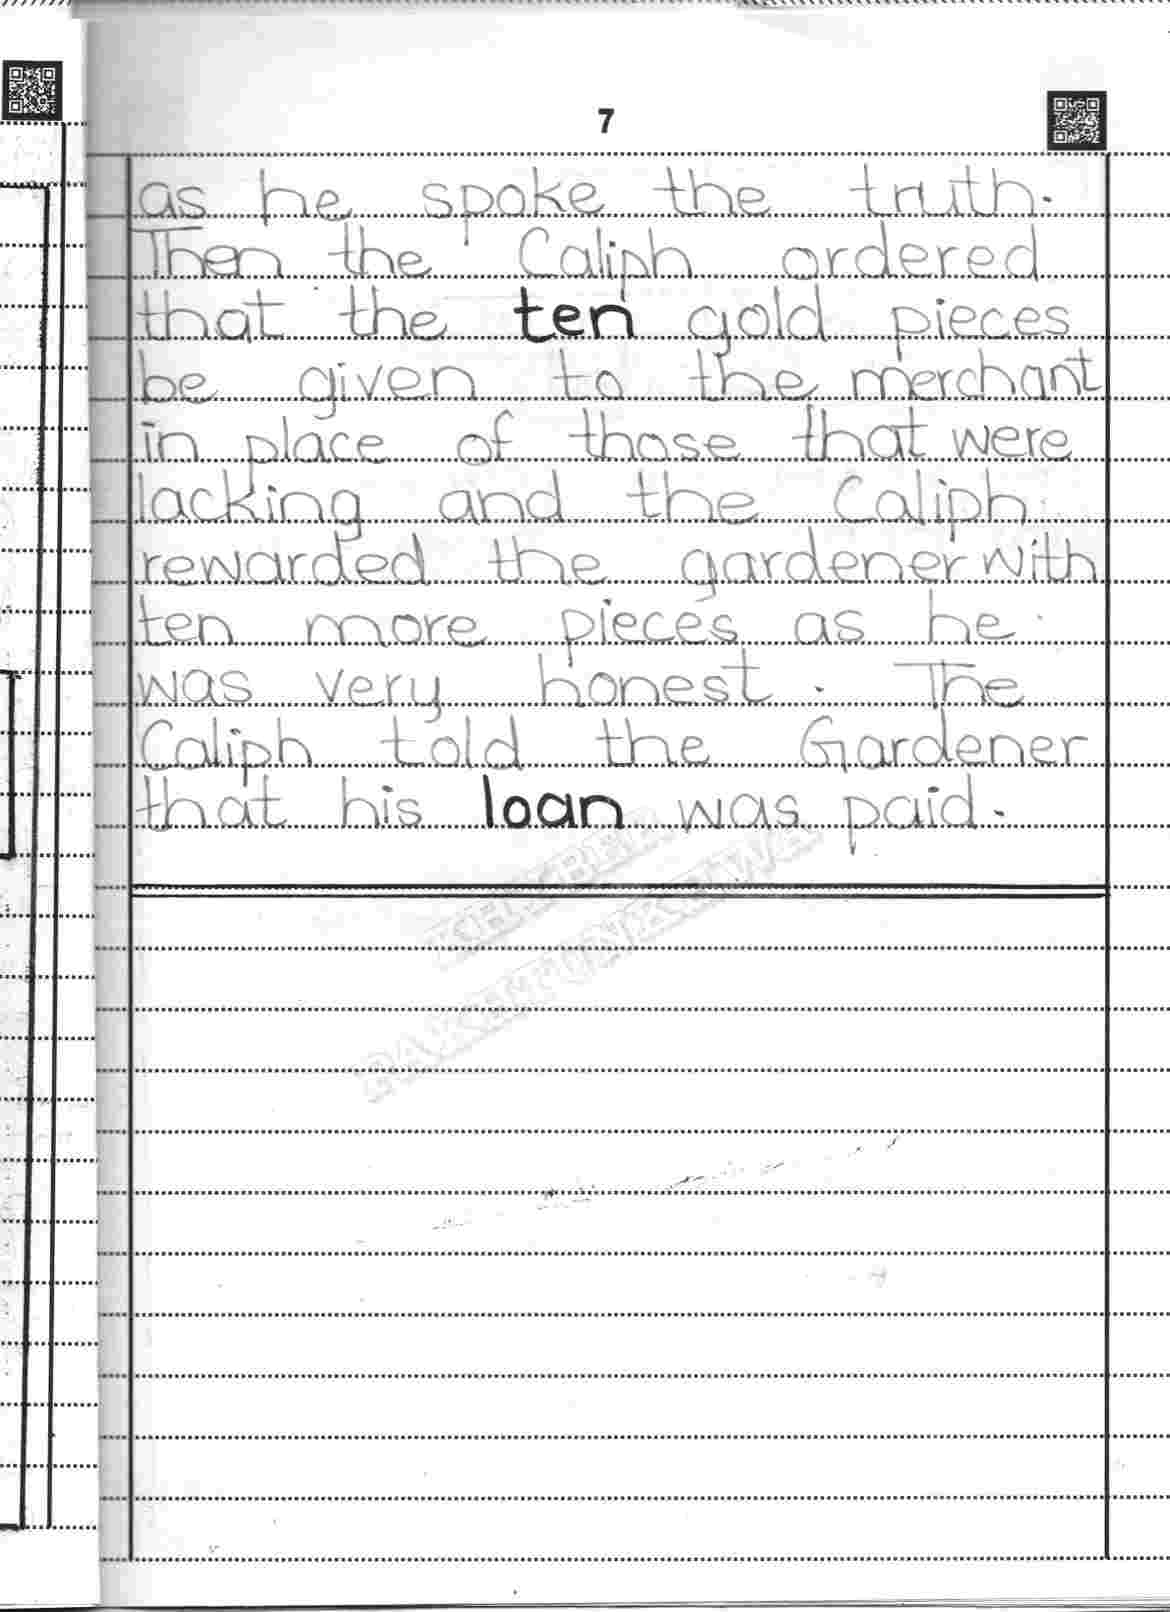 7
as he spoke the truth.
Then the Caliph ordered
that the ten gold pieces
be given to the merchant
in place of those that were
lacking and the Caliph
rewarded the gardener with
ten more pieces as he
was very honest. The
Caliph told the Gardener
that his loan was paid.
KHYBER
PAKHTUNKHWA